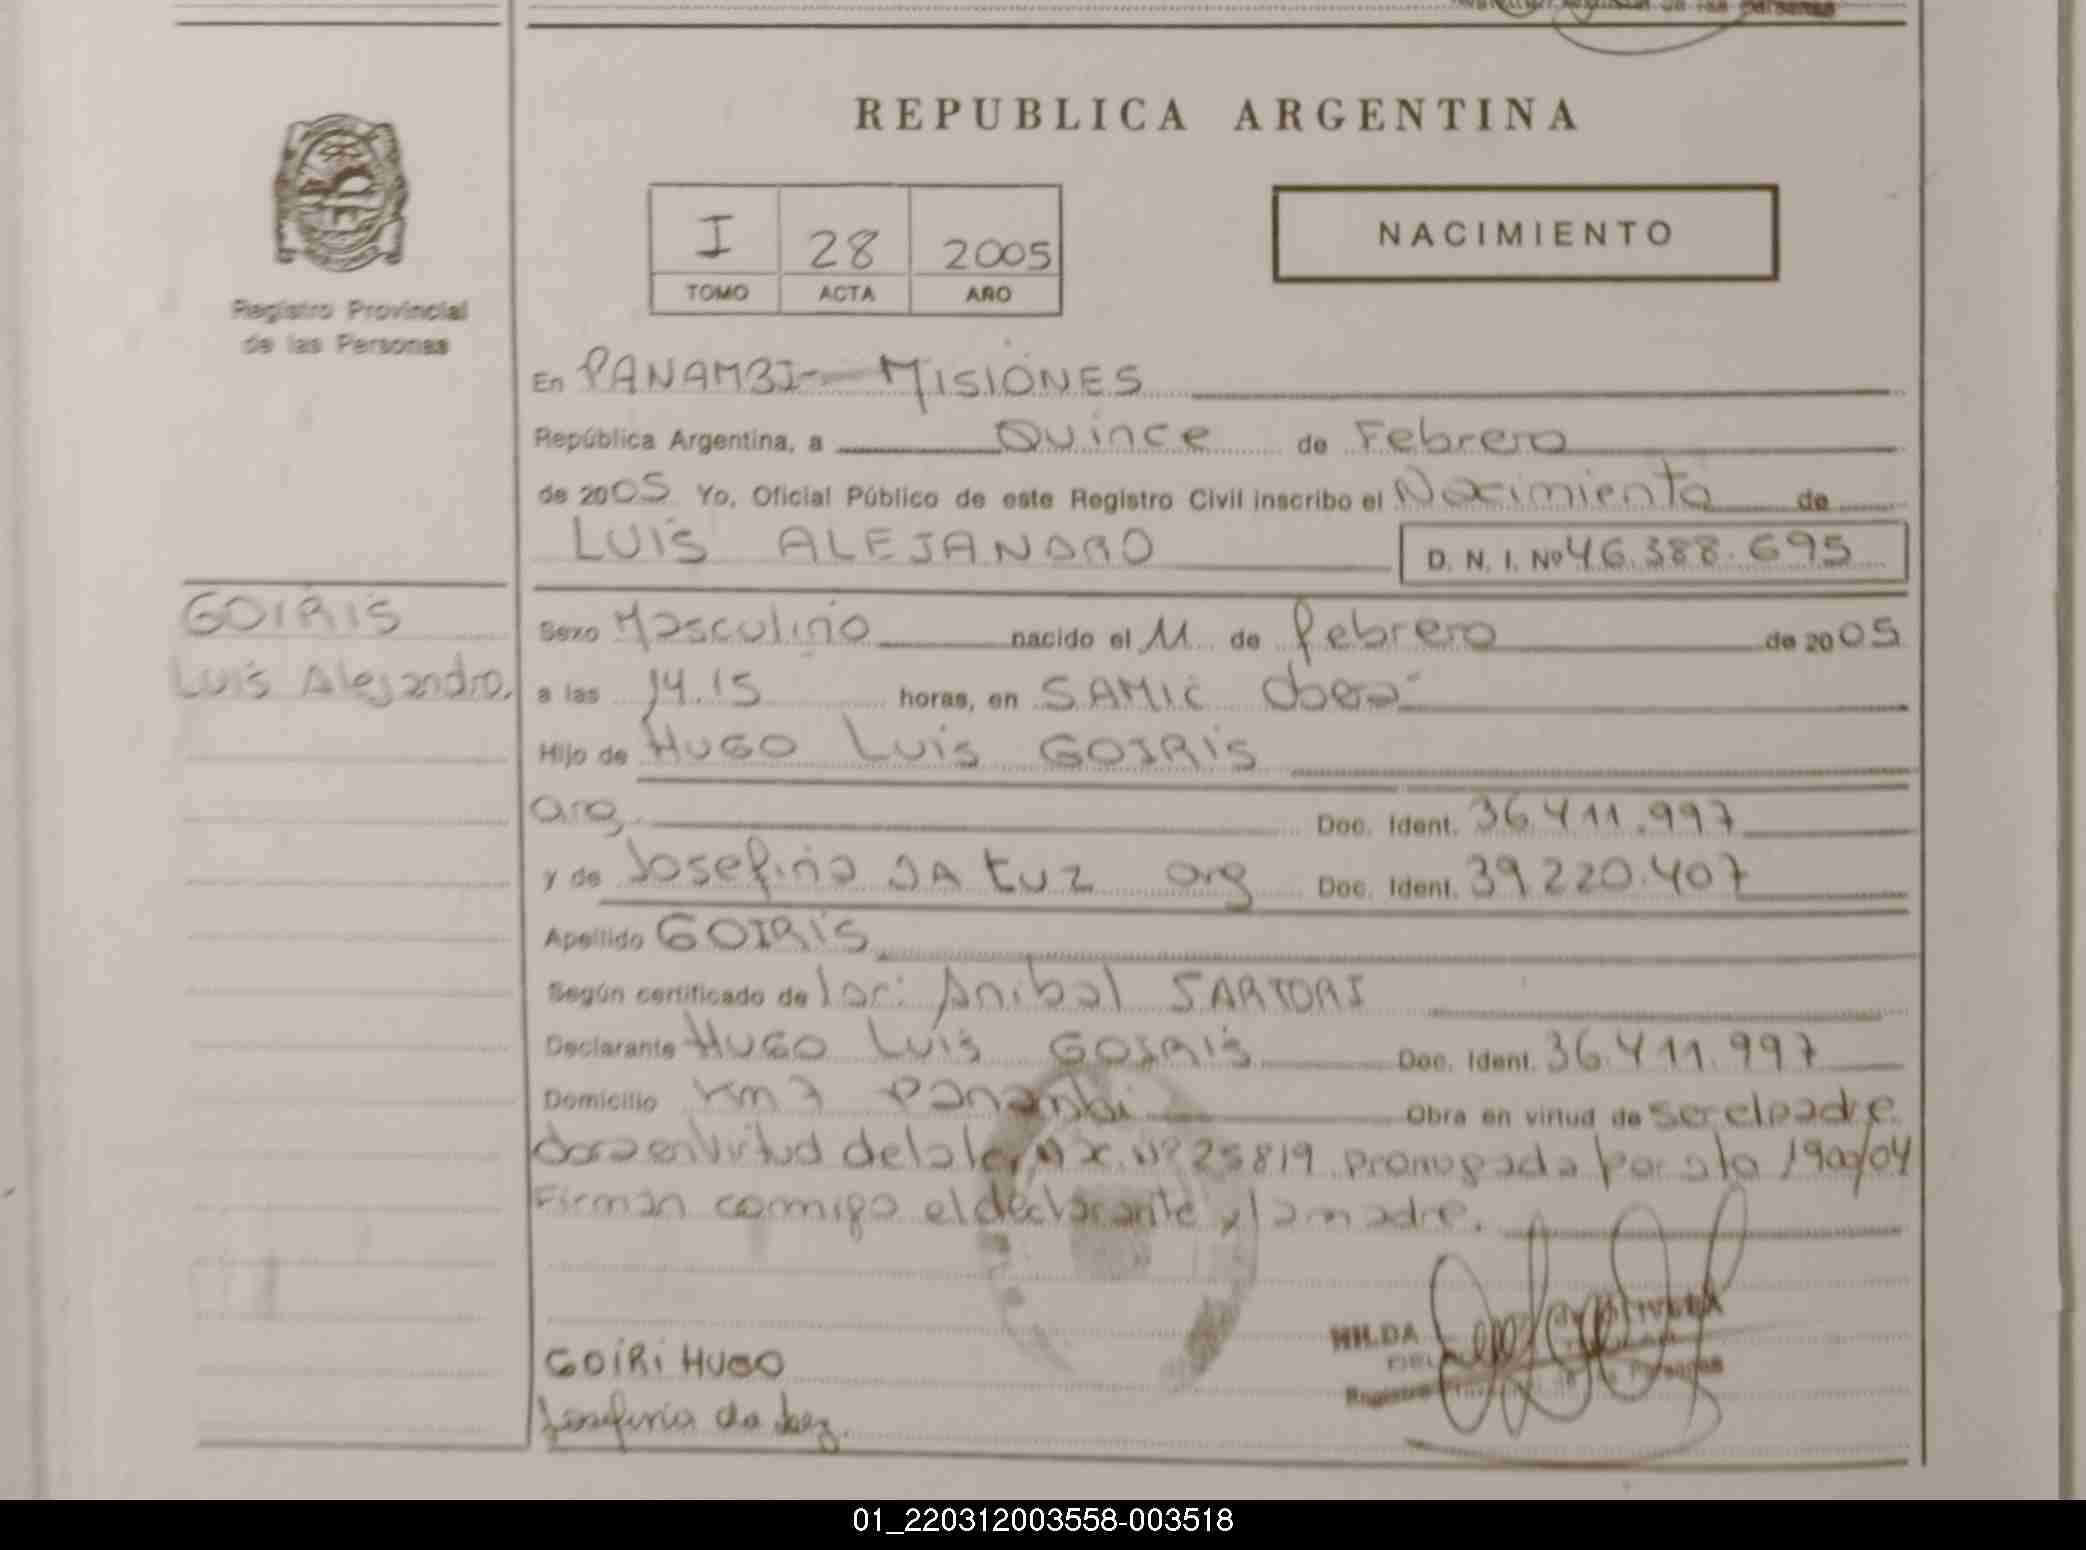 de las Personas
REPUBLICA ARGENTINA
I 28 2005
TOMO ACTA AÑO
NACIMIENTO
Registro Provincial
de las Personas
En PANAMBI - MISIONES
República Argentina, a Quince de Febrero
de 2005 Yo, Oficial Público de este Registro Civil inscribo el Nacimiento de
LUIS ALEJANDRO D. N. I. Nº 46.388.695
GOIRIS
Luis Alejandro.
Sexo Masculino nacido el 11 de febrero de 2005
a las 14.15 horas, en SAMIC Oberá
Hijo de HUGO LUIS GOIRIS
arg. Doc. Ident. 36.411.997
y de Josefina DA LUZ arg Doc. Ident. 39.220.407
Apellido GOIRIS
Según certificado de Anibal SARTORI
Declarante HUGO LUIS GOIRIS Doc. Ident. 36.411.997
Domicilio Km 7 Panambi Obra en virtud de ser el padre
en virtud de la ley Nº 25819 por 1900/04
Firman conmigo el declarante y la madre.
GOIRI HUGO
Josefina da luz.
HILDA
DEL
Registro Personas
01_220312003558-003518